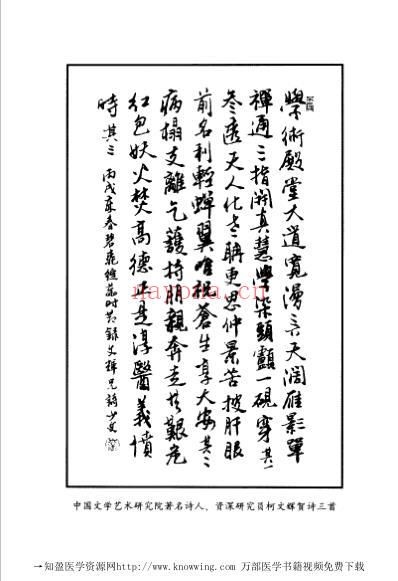 學術殿堂大道寬漫言天闊雁影單
禪通三指開真慧 染頭顱一硯穿其一
參透天人化老聃更思仲景苦披肝眼
前名利輕蟬翼唯祝蒼生享大安其二
病榻支離氣護持朋親奔走共艱危
紅包妖火焚高德正是淳醫義憤
時其三 丙戌 春 錄文輝兄詩
nayona.cn
中国文学艺术研究院著名诗人、资深研究员柯文辉贺诗三首
一知盈医学资源网http://www.knowing.com 万部医学书籍视频免费下载